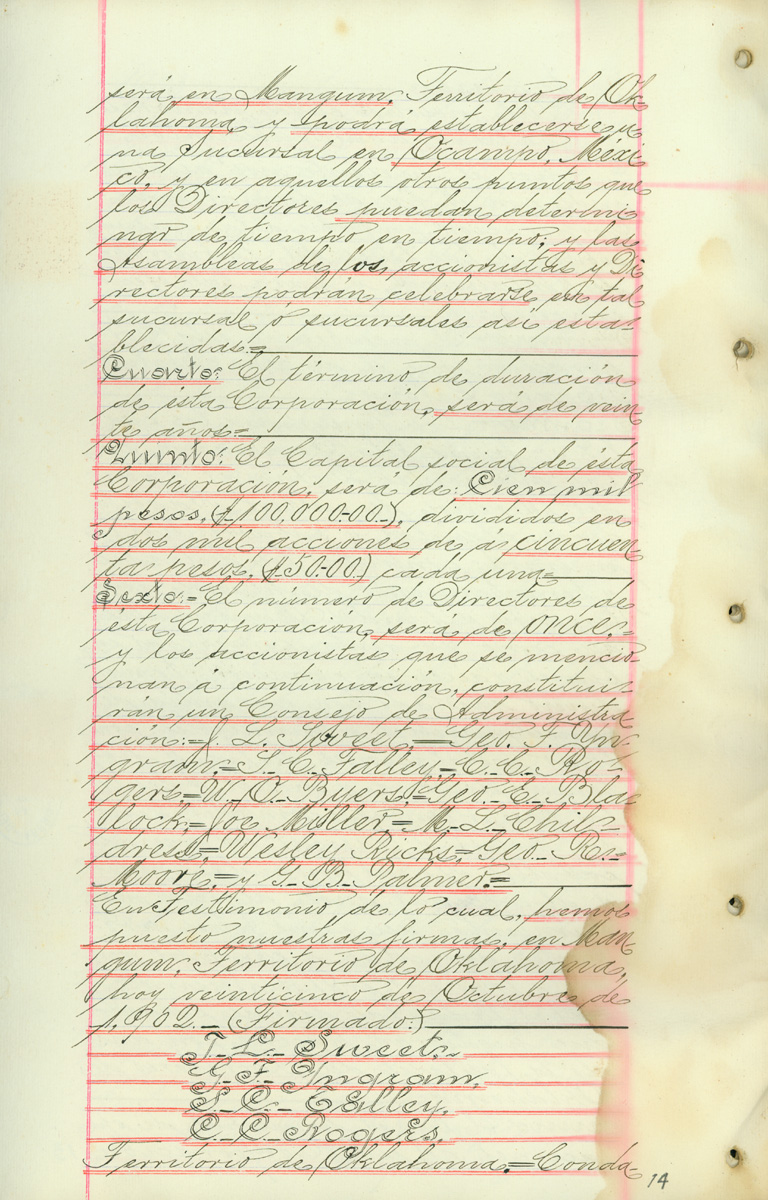 será en Mangum, Territorio de Ok
lahoma, y podrá establecerse u
na Sucursal en Ocampo, Méxi
co, y en aquellos otros puntos que
los Directores puedan determi
nar de tiempo en tiempo; y las
Asambleas de los accionistas y Di
rectores podrán celebrarse en tal
sucursal ó sucursales así esta-
blecidas.=
Cuarto: El término de duración
de ésta Corporación, será de vein
te años=
Quinto: El Capital social de ésta
Corporación, será de: Cien mil
pesos, ($100,000.00.), divididos en
dos mil acciones de á cincuen
ta pesos, ($50.00) cada una=
Sexto:= El número de Directores de
ésta Corporación, será de once,-
y los accionistas que se mencio-
nan á continuación, constitui-
rán un Consejo de Administra
ción:=J. L. Sweet.=Geo. F. Yn-
gram.=S. C. Talley.=C. C. Ro-
gers.=W. O. Byers.=Geo. E. Bla-
lock.=Joe Miller=M. L. Chil-
dress=Wesley Ricks.=Geo. R.-
Moore.=y G. B. Palmer.=
En testimonio de lo cual, hemos
puesto nuestras firmas, en Man
gum, Territorio de Oklahoma,
hoy veinticinco de Octubre de
1,902.- (Firmado:)
J. L. Sweet.-
G. F. Yngram.
S. C. Talley.
C. C. Rogers.
Territorio de Oklahoma.=Conda-
14